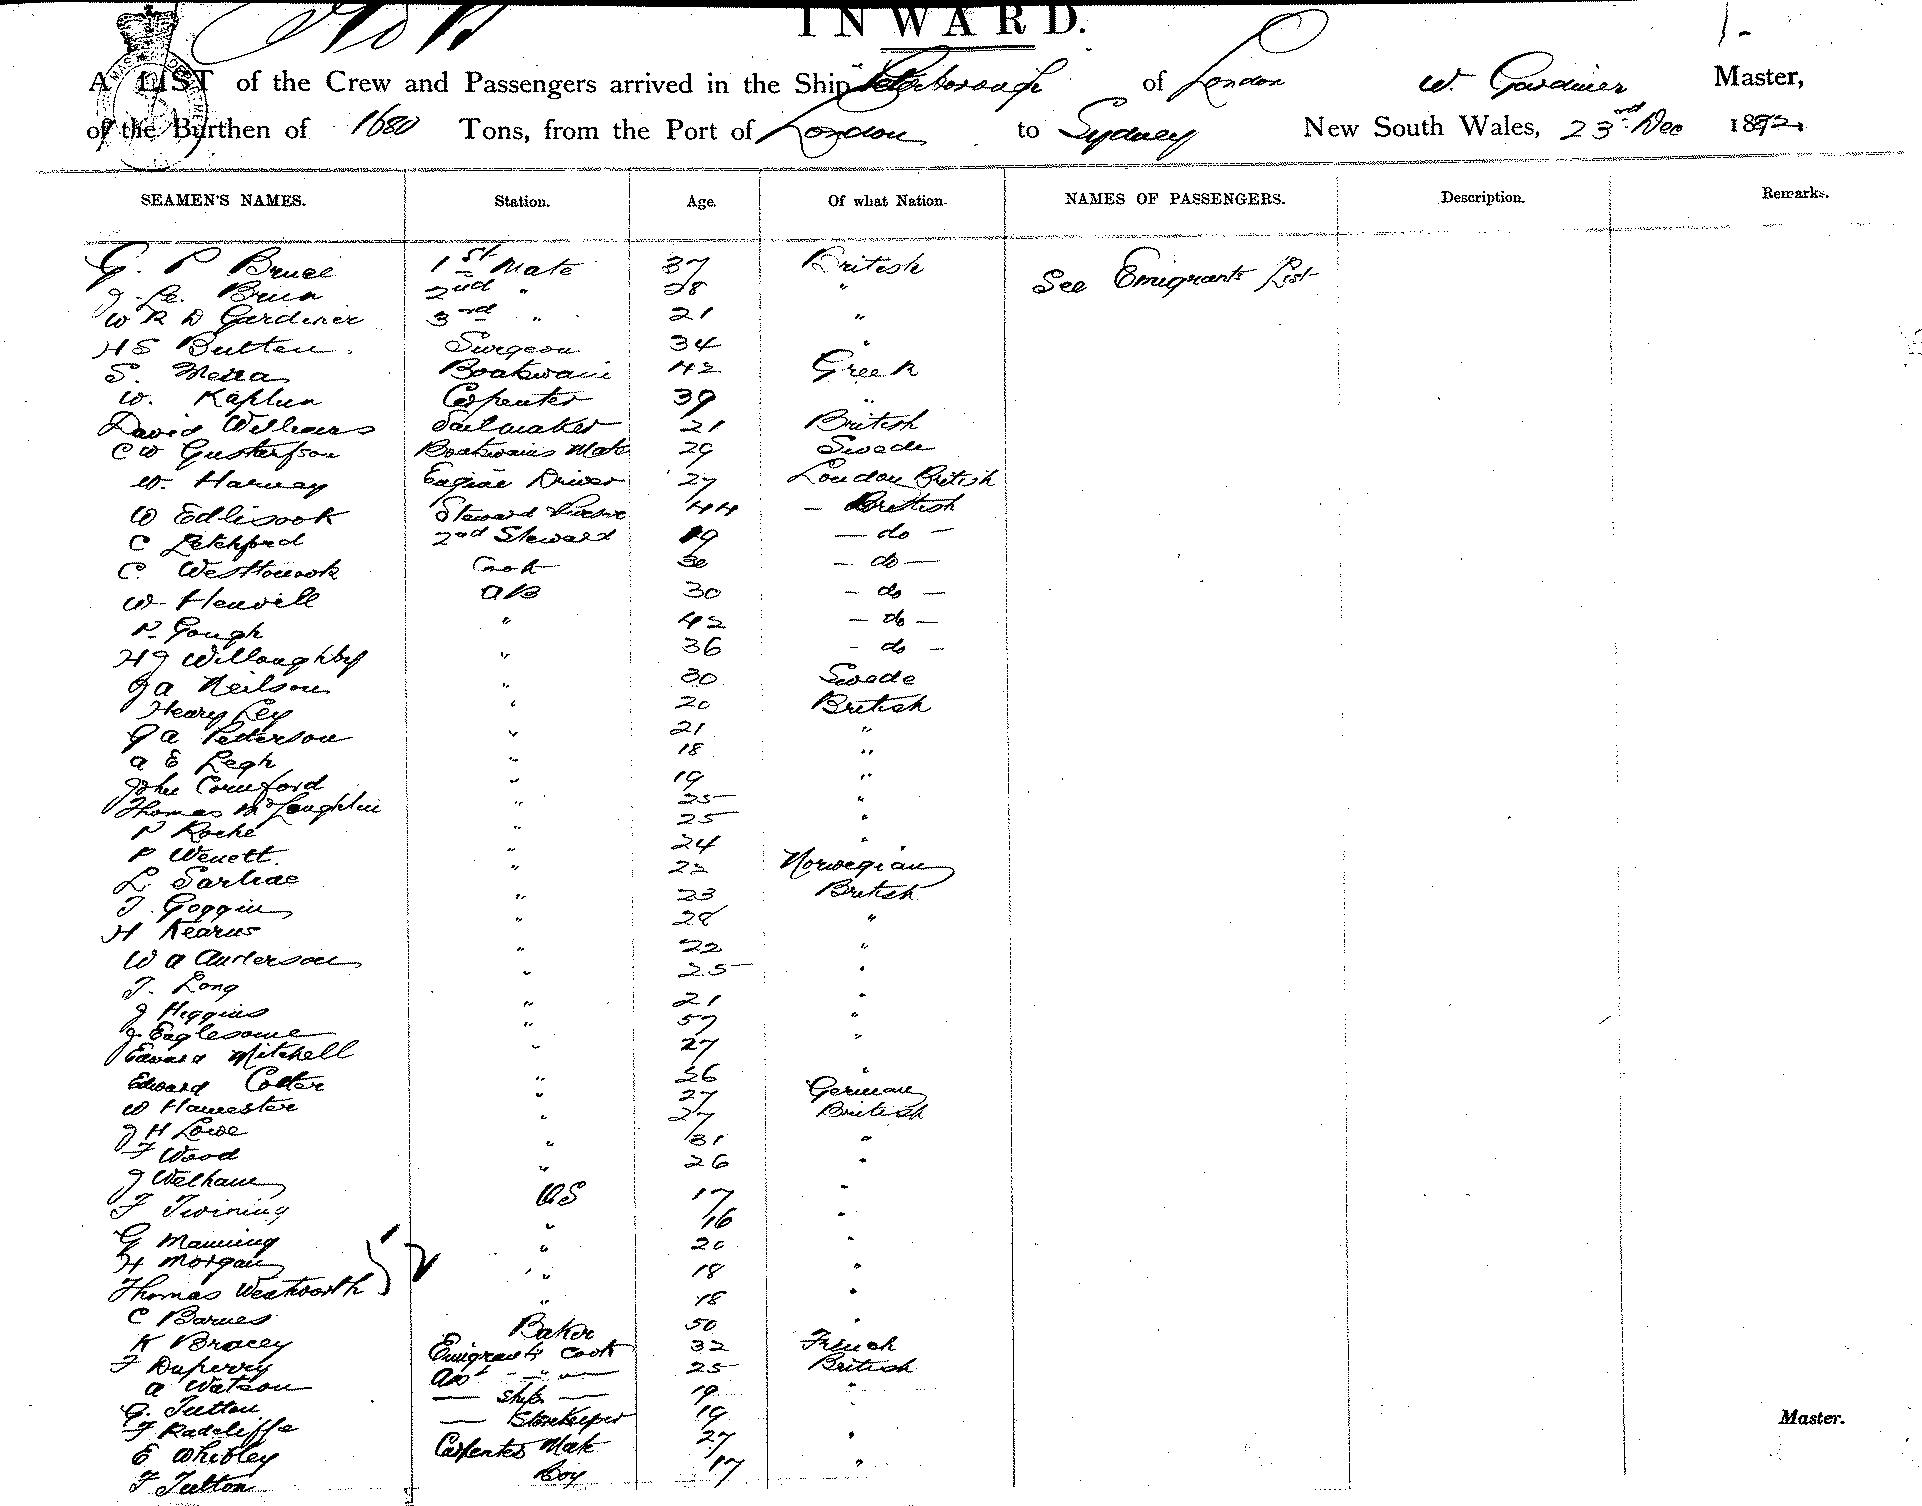 INWARD.
A LIST of the Crew and Passengers arrived in the Ship Peterborough of London W. Gardiner Master,
of the Burthen of 1680 Tons, from the Port of London to Sydney New South Wales, 23rd Dec 1892
SEAMEN'S NAMES. Station. Age. Of what Nation. NAMES OF PASSENGERS. Description. Remarks.
G. P Bruce 1st Mate 37 British See Emigrants List
J. Le. Brun 2nd " 28 "
W R D Gardiner 3rd " 21 "
H S Butten. Surgeon 34 "
S. Mexa Boatswain 42 Greek
W. Kaplun Carpenter 39 "
David Williams Sailmaker 21 British
C W Gustafson Boatswains Mate 29 Swede
W. Harvey Engine Driver 27 London British
W Edlisook Steward 44 - British
C Letchford 2nd Steward 19 - do -
C. Westbrook Cook 30 - do -
W Henvill AB 30 - do -
P. Gough " 42 - do -
H J Willoughby " 36 - do -
J A Neilson " 30 Swede
Henry Ley " 20 British
G A Petterson " 21 "
A E Legh " 18 "
John Cornford " 19 "
Thomas McLoughlin " 25 "
P Roche " 25 "
P Wenett. " 24 "
L. Sarliae " 22 Norwegian
T. Goggin " 23 British
H Kearns " 28 "
W A Anderson " 22 "
T. Long " 25 "
J Higgins " 21 "
J Eaglesome " 57 "
Edward Mitchell " 27 "
Edward Cotter " 26 "
W Hamester " 27 German
J H Lowe " 27 British
F Wood " 31 "
J Welham " 26 "
F Twining OS 17 "
G Manning " 16 "
H Morgan " 20 "
Thomas Wentworth " 18 "
C Barnes " 18 "
K Bracey Baker 50 "
F Duperry Emigrants Cook 32 French
A Watson Asst - " - 25 British
G. Tutton - ships - 19 "
F Radcliffe - Storekeeper 19 "
E Whibley Carpenters Mate 27 "
F Tutton Boy 17 "
Master.